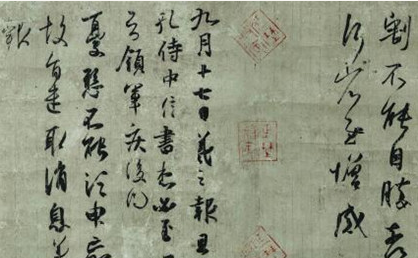 割不能自勝奈
省慰增感
九月十七日羲之報且
孔侍中信書想必至不
知領軍疾後問
憂懸不能須臾忘
故旨遣取消息羲
報